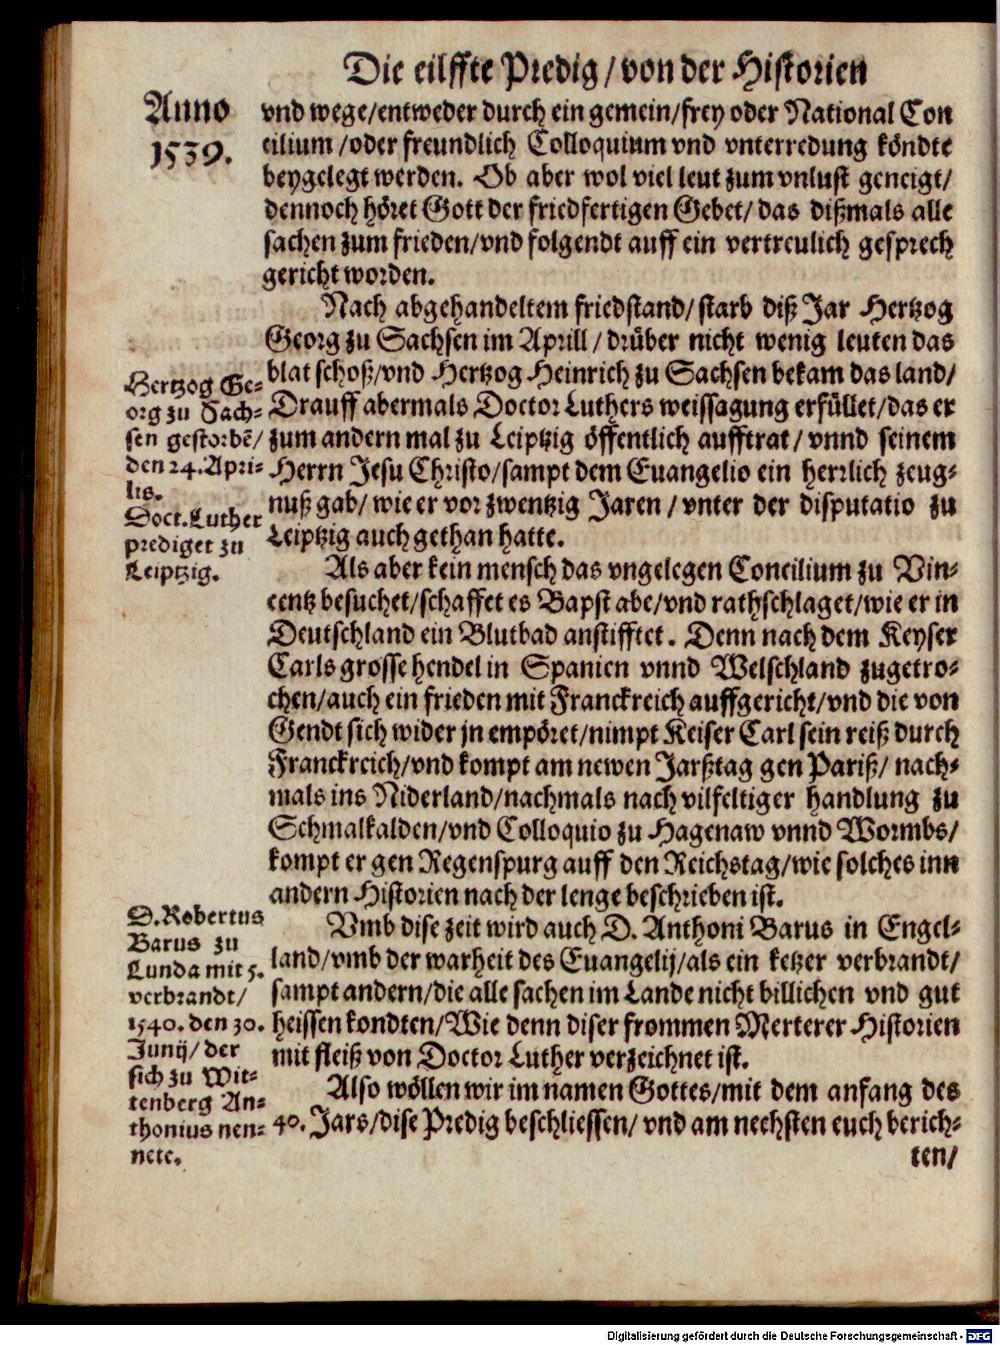 Die eilffte Predig/von der Historien
Anno
1539.
vnd wege/entweder durch ein gemein/frey oder National Con
cilium/oder freundlich Colloquium vnd vnterredung köndte
beygelegt werden. Ob aber wol viel leut zum vnlust geneigt/
dennoch höret Gott der friedfertigen Gebet/das dißmals alle
sachen zum frieden/vnd folgendt auff ein vertreulich gesprech
gericht worden.
Nach abgehandeltem friedstand/starb diß Jar Hertzog
Georg zu Sachsen im Aprill/drüber nicht wenig leuten das
blat schoß/vnd Hertzog Heinrich zu Sachsen bekam das land/
Drauff abermals Doctor Luthers weissagung erfüllet/das er
zum andern mal zu Leiptzig öffentlich aufftrat/vnnd seinem
Herrn Jesu Christo/sampt dem Euangelio ein herrlich zeug-
nuß gab/wie er vor zwentzig Jaren/vnter der disputatio zu
Leiptzig auch gethan hatte.
Hertzog Ge-
org zu Sach-
sen gestorbē/
den 24.Apri-
lis.
Doct.Luther
prediget zu
Leiptzig.
Als aber kein mensch das vngelegen Concilium zu Vin-
centz besuchet/schaffet es Bapst abe/vnd rathschlaget/wie er in
Deutschland ein Blutbad anstifftet. Denn nach dem Keyser
Carls grosse hendel in Spanien vnnd Welschland zugetro-
chen/auch ein frieden mit Franckreich auffgericht/vnd die von
Gendt sich wider jn empöret/nimpt Keiser Carl sein reiß durch
Franckreich/vnd kompt am newen Jarßtag gen Pariß/nach-
mals ins Niderland/nachmals nach vilfeltiger handlung zu
Schmalkalden/vnd Colloquio zu Hagenaw vnnd Wormbs/
kompt er gen Regenspurg auff den Reichstag/wie solches inn
andern Historien nach der lenge beschrieben ist.
Vmb dise zeit wird auch D. Anthoni Barus in Engel-
land/vmb der warheit des Euangelij/als ein ketzer verbrandt/
sampt andern/die alle sachen im Lande nicht billichen vnd gut
heissen kondten/Wie denn diser frommen Merterer Historien
mit fleiß von Doctor Luther verzeichnet ist.
D.Robertus
Barus zu
Lunda mit 5.
verbrandt/
1540. den 30.
Junij/der
sich zu Wit-
tenberg An-
thonius nen-
nete.
Also wöllen wir im namen Gottes/mit dem anfang des
40. Jars/dise Predig beschliessen/vnd am nechsten euch berich-
ten/
Digitalisierung gefördert durch die Deutsche Forschungsgemeinschaft - DFG